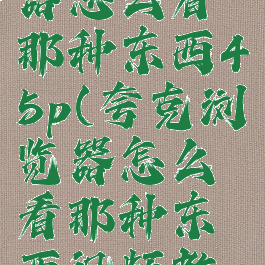 器怎么看
那种东西4
5p(夸克浏
览器怎么
看那种东
西视频教